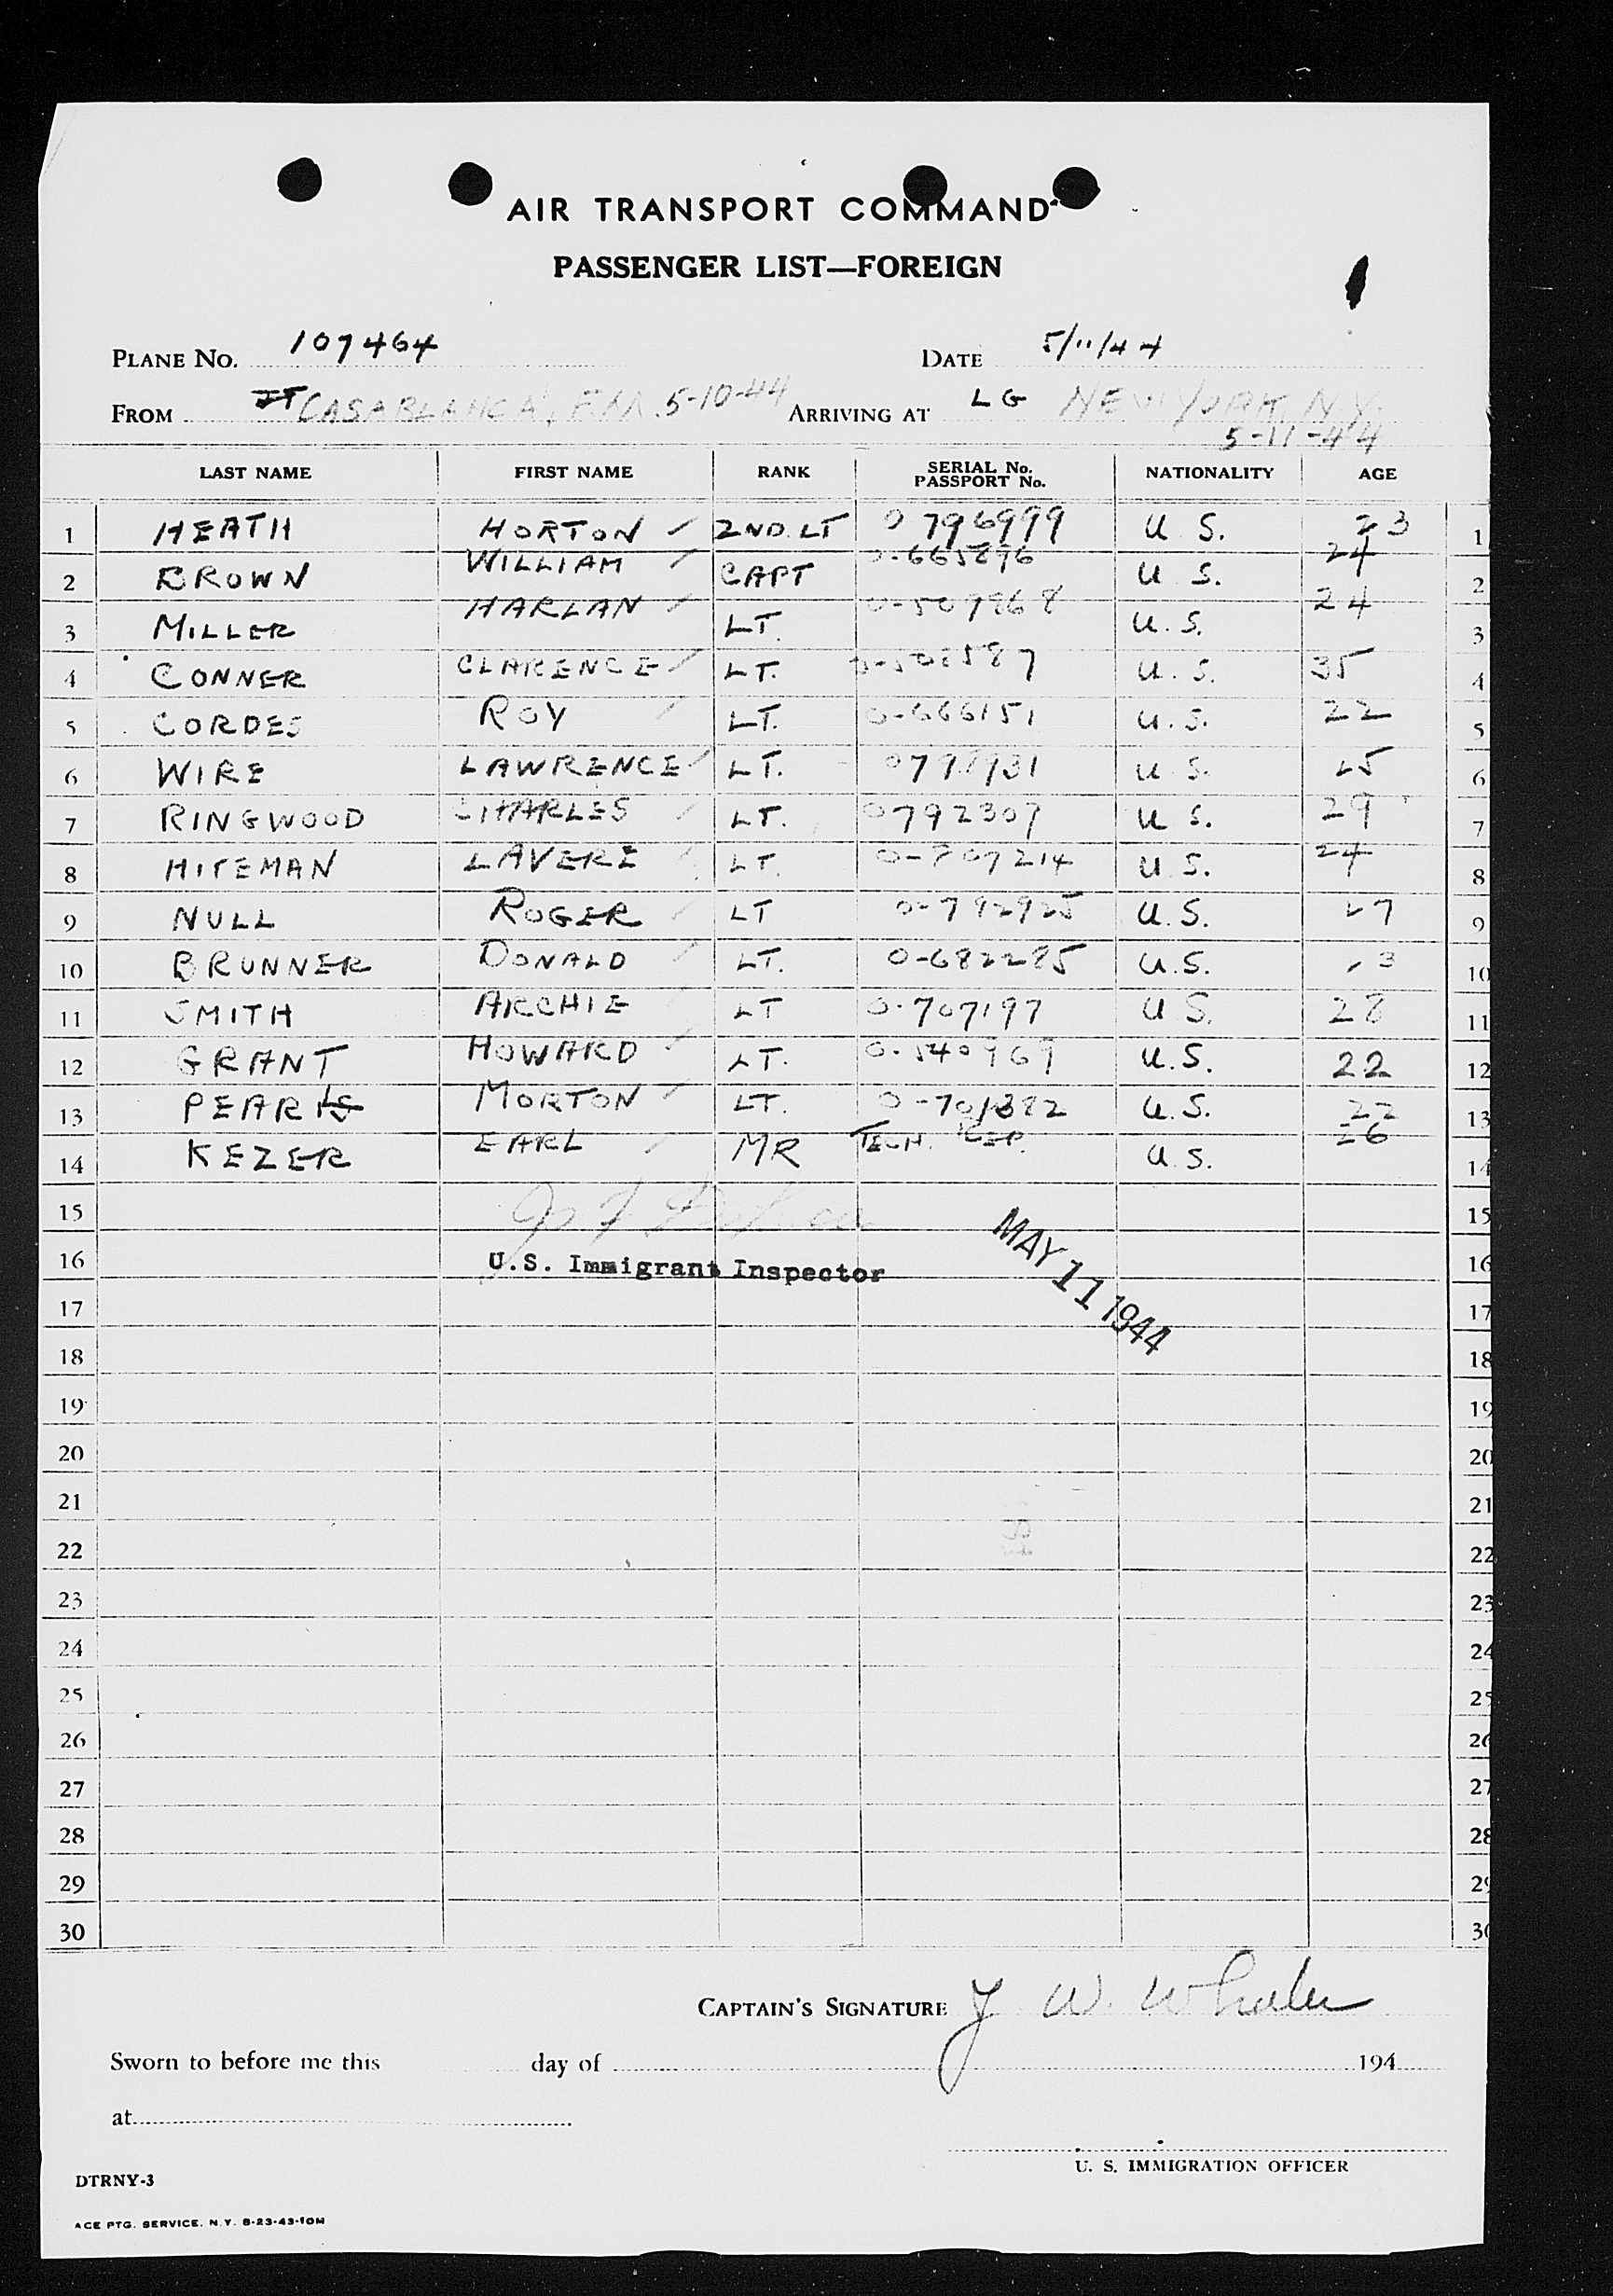 AIR TRANSPORT COMMAND
PASSENGER LIST—FOREIGN
PLANE No. 107464 DATE 5/11/44
FROM CASABLANCA, 5-10-44 ARRIVING AT LG NEW YORK, N.Y.
5-11-44
LAST NAME FIRST NAME RANK SERIAL No. PASSPORT No. NATIONALITY AGE
1 HEATH HORTON 2ND. LT 0 796999 U.S. 23 1
2 BROWN WILLIAM CAPT U.S. 24 2
3 MILLER HARLAN LT. U.S. 24 3
4 CONNER CLARENCE LT. U.S. 35 4
5 CORDES ROY LT. 0-666151 U.S. 22 5
6 WIRE LAWRENCE LT. U.S. 25 6
7 RINGWOOD CHARLES LT. 0792307 U.S. 29 7
8 HITEMAN LAVERE LT. U.S. 24 8
9 NULL ROGER LT 0-792925 U.S. 27 9
10 BRUNNER DONALD LT. 0-682285 U.S. 10
11 SMITH ARCHIE LT 0-707197 U.S. 28 11
12 GRANT HOWARD LT. U.S. 22 12
13 MORTON LT. U.S. 22 13
14 KEZER EARL MR TECH. REP. U.S. 26 14
15 15
U.S. Immigrant Inspector
MAY 11 1944
16 16
17 17
18 18
19 19
20 20
21 21
22 22
23 23
24 24
25 25
26 26
27 27
28 28
29 29
30 30
CAPTAIN'S SIGNATURE J W. Whalen
Sworn to before me this day of 194
at
U. S. IMMIGRATION OFFICER
DTRNY-3
ACE PTG. SERVICE. N.Y. 8-23-43-10M